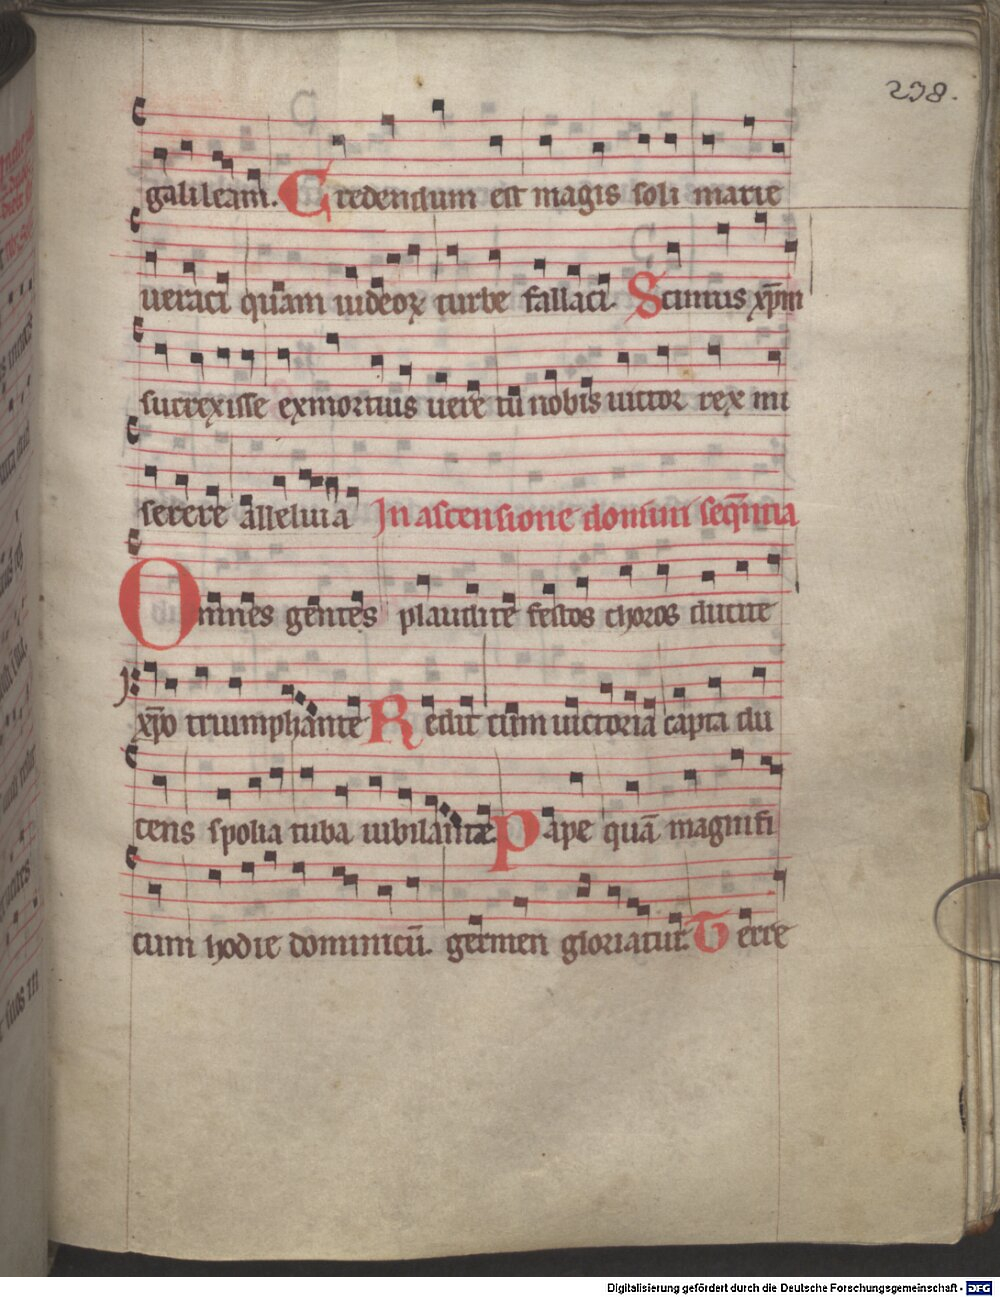 238.
galileam. Credendum est magis soli marie
ueraci quam iudeoꝝ turbe fallaci. Scimus xp̄m
surrexisse exmortuis uere tu nobis uictor rex mi
serere alleluia In ascensione domini seq̄ntia
Omnes gentes plaudite festos choros ducite
xp̄o triumphante Redit cum uictoria capta du
cens spolia tuba iubilante. Pape quā magnifi
cum hodie dominicū. germen gloriatur. Terre
Digitalisierung gefördert durch die Deutsche Forschungsgemeinschaft - DFG